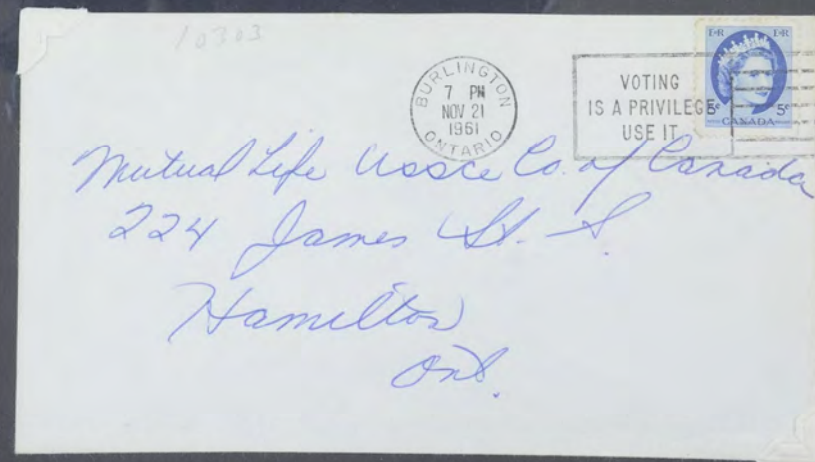 10303
BURLINGTON
7 PM
NOV 21
1961
ONTARIO
VOTING
IS A PRIVILEGE
USE IT
E R E R
5c 5c
CANADA
Mutual Life Assce Co. of Canada
224 James St. S.
Hamilton
Ont.